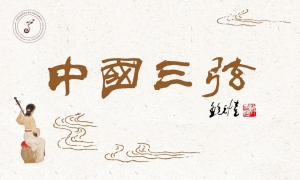 中國三弦